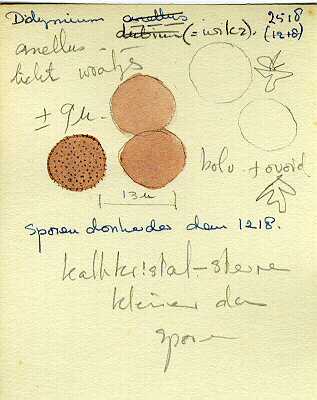 Didymium anellus 2518
dubium (= wilcz). (12+8)
anellus -
licht wratj
± 9µ.
bolv. + ovoid
13µ
Sporen donkerder dan 1218.
kalkkristal-sterre
kleiner dan
spore